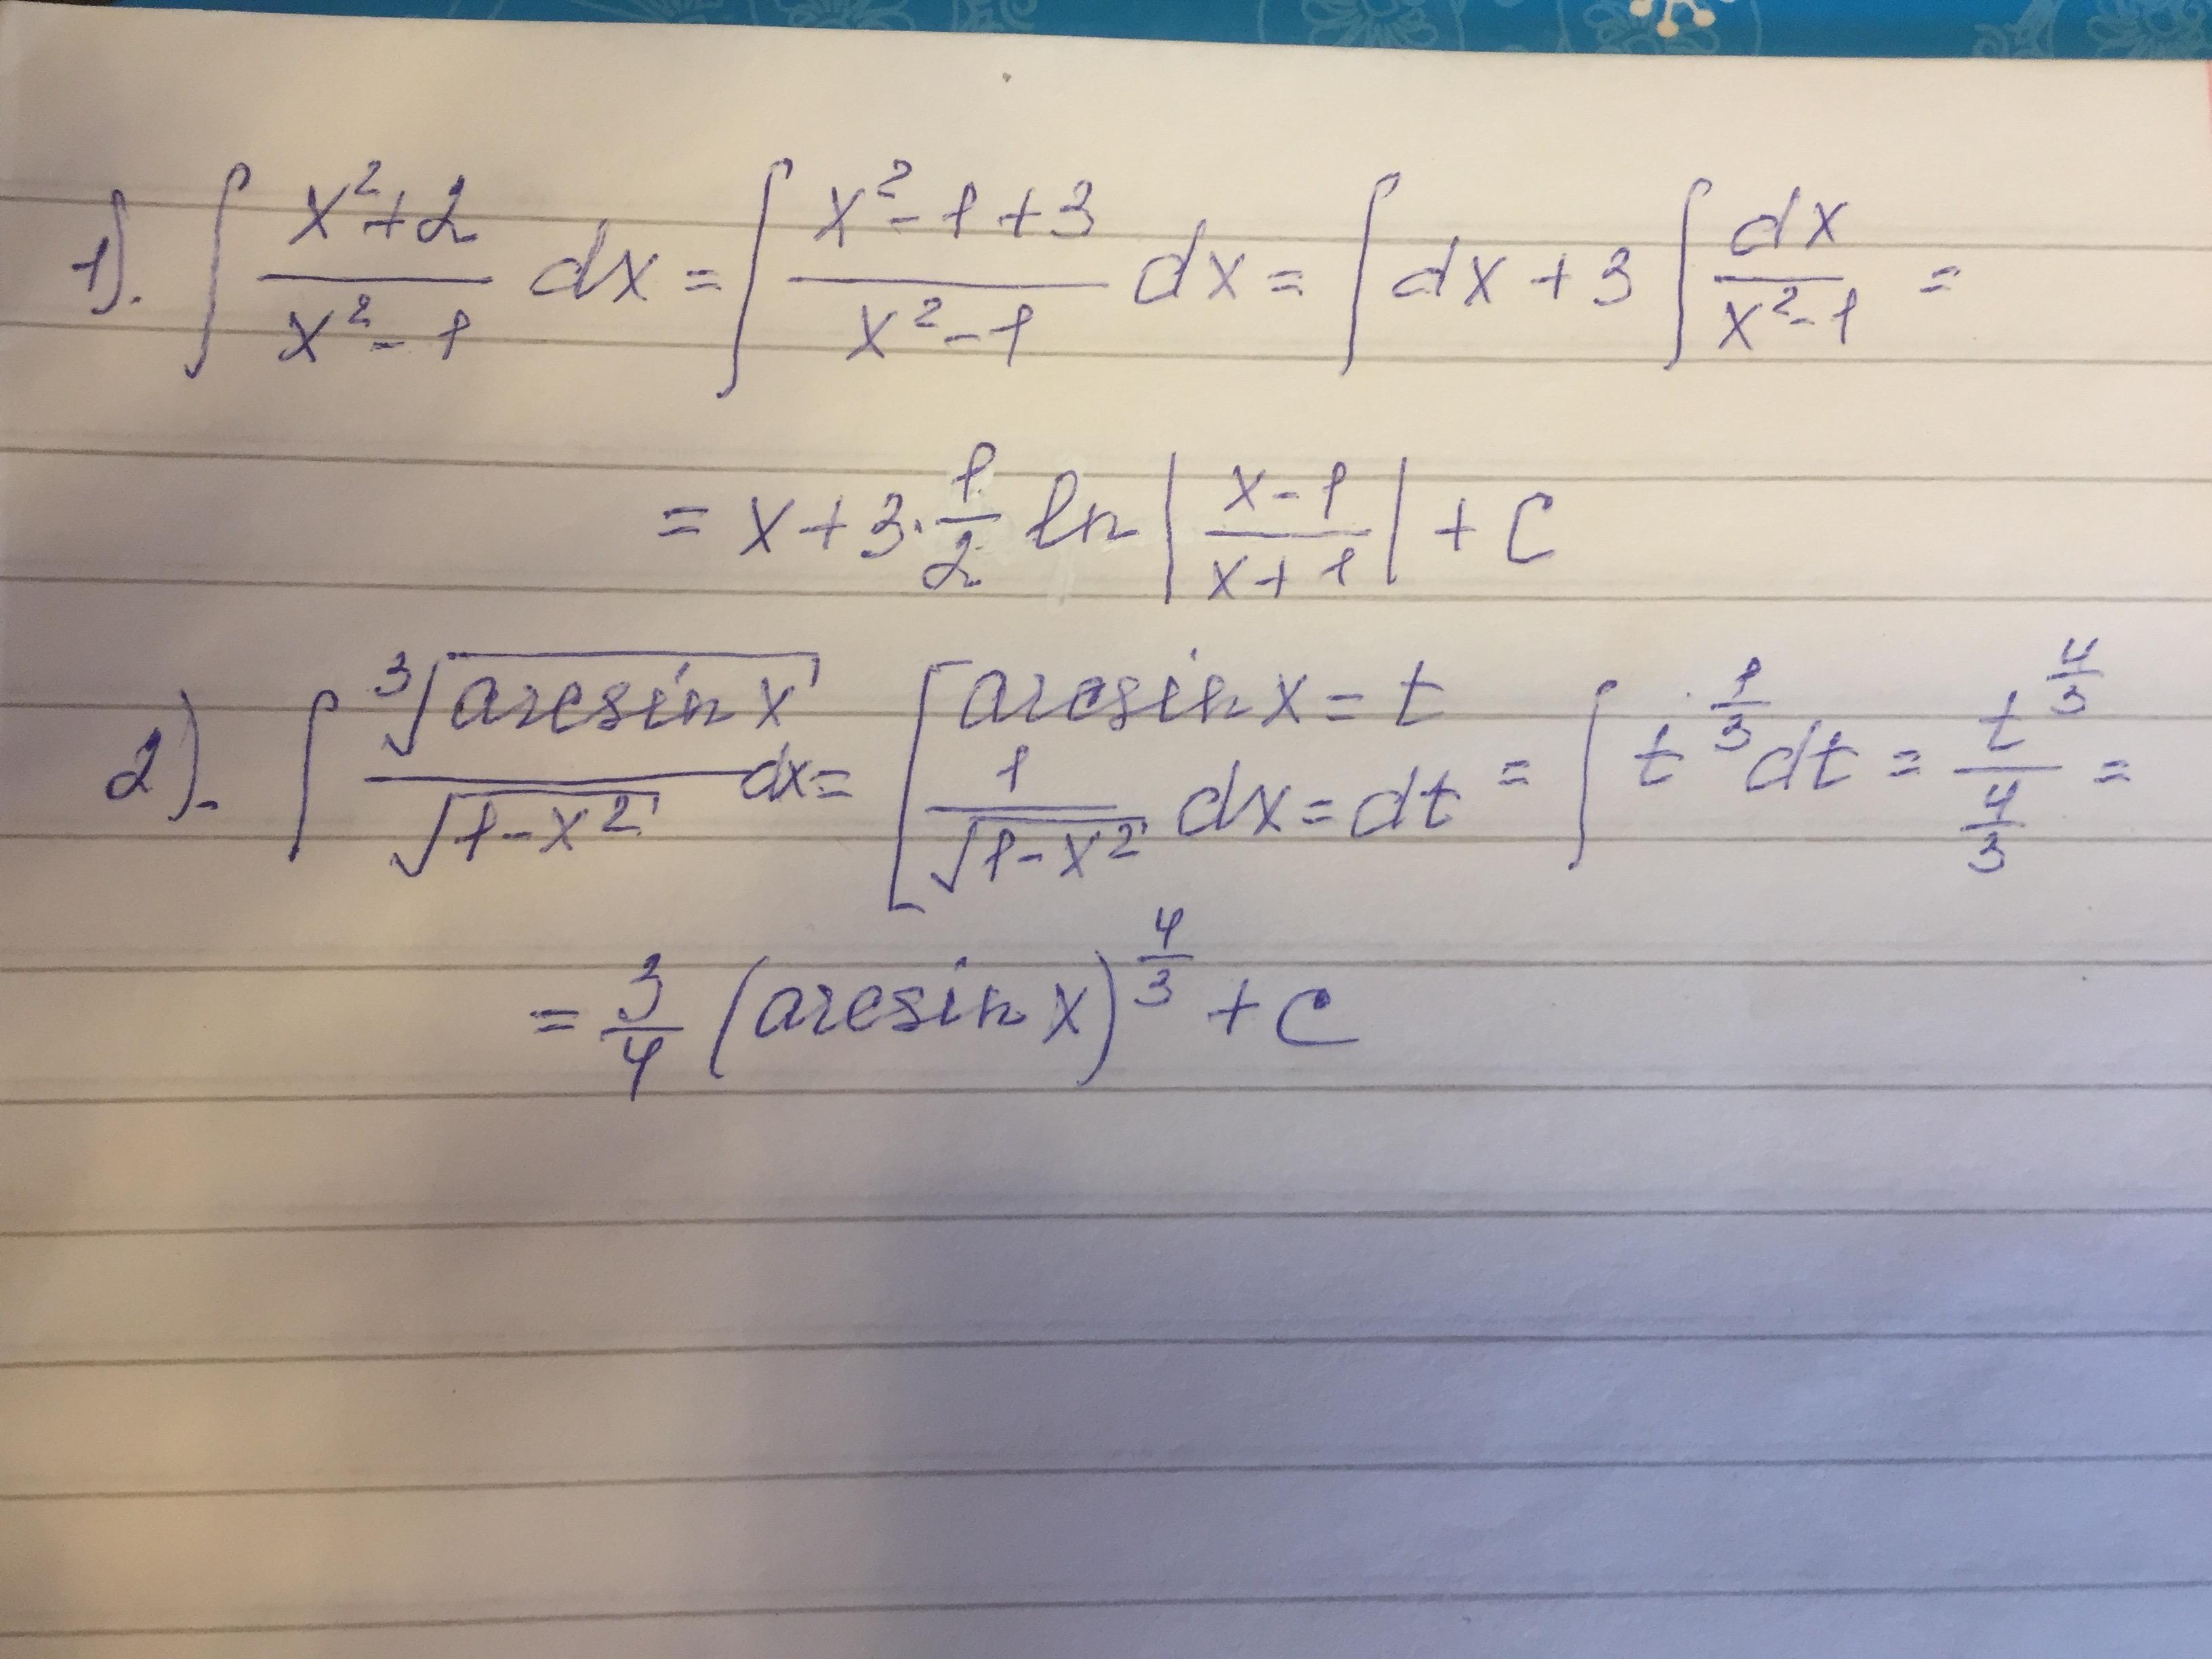 1). ∫ (x²+2)/(x²-1) dx = ∫ (x²-1+3)/(x²-1) dx = ∫ dx + 3 ∫ dx/(x²-1) =
= x + 3 · 1/2 ln |(x-1)/(x+1)| + C
2). ∫ ∛(arcsin x)/√(1-x²) dx = [arcsin x = t; 1/√(1-x²) dx = dt = ∫ t^(1/3) dt = t^(4/3)/(4/3) =
= 3/4 (arcsin x)^(4/3) + C